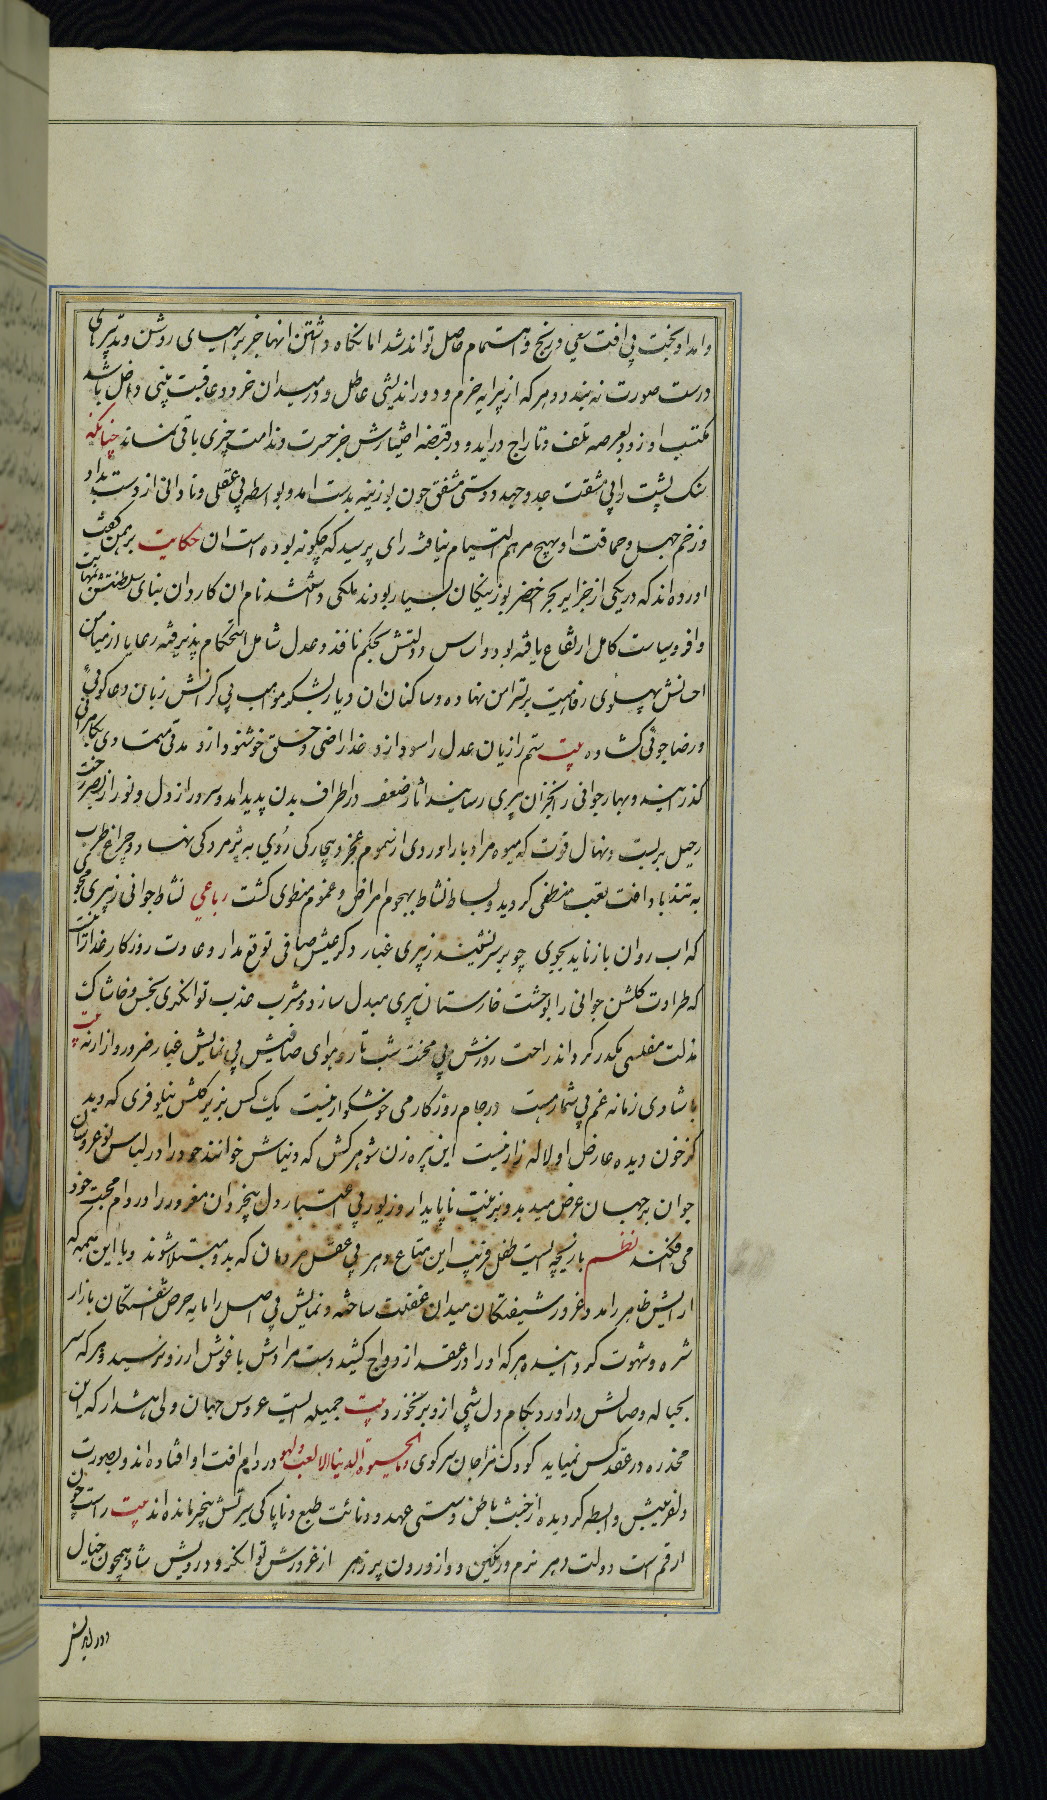 و امداد بخت بی افت سعی و رنج و اهتمام حاصل تواند شد اما نگاه داشتن انها جز براهیهای روشن و تدبیرهای
درست صورت نه بندد و هر که از پیرایه حزم و دور اندیشی عاطل و در میدان خرد و عاقبت بینی داخل باشد
مکتسب او زود بعرصه تلف و تاراج دراید و در قبضه اختیارش جز حسرت و ندامت چیزی باقی نماند چنانکه
سنک پشت را بی مشقت جد و جهد دوستی مشفق چون بوزینه بدست امد و بواسطه بی عقلی و نادانی از دست بداد
و زخم جهل و حماقت او بهیچ مرهم التیام نیافت رای پرسید که چکونه بوده است ان حکایت برهمن کفت
اورده اند که در یکی از جزایر بحر اخضر بوزینکان بسیار بودند ملکی داشتند نام ان کاردان بنای سلطنتش بمهابت
وافر و سیاست کامل ارتفاع یافته بود و اساس دولتش بحکم نافذ و عدل شامل استحکام پذیرفته رعایا از میامن
احسانش پهلوی رفاهیت بر بستر امن نهاده و ساکنان ان دیار بشکر مواهب بی کرانش زبان دعا کوئی
و رضا جوئی کشاده بیت ستم را زیان عدل را سود ازو خدا راضی و خلق خوشنود ازو مدتی متمادی بکامرانی
کذرانیده و بهار جوانی را بخزان پیری رسانیده اثار ضعف در اطراف بدن پدید امد و سرور از دل و نور از بصر رخت
رحیل بربست و نهال قوت که میوه مراد بار اوردی از سموم عجز و بیچارکی روی به پژمردکی نهاد و چراغ طرب
به تندباد افت تعب منطفی کردید و بساط نشاط بهجوم امراض و غموم منطوی کشت رباعی نشاط جوانی ز پیری مجوی
که اب روان باز ناید بجوی چو بر سر نشیند ز پیری غبار دکر عیش صافی توقع مدار و عادت روزکار غدار انست
که طراوت کلشن جوانی را بوحشت خارستان پیری مبدل سازد و مشرب عذب توانکری بخس و خاشاک
مذلت مفلسی مکدر کرداند راحت روزش بی محنت شب تار نه هوای صافیش بی نمایش غبار ضرر و ازار نه بیت
با شادی زمانه غم بی شمار هست در جام روزکار می خوشکوار نیست یک کس بزیر کلشن نیلوفری که دید
کز خون دیده عارض او لاله زار نیست این پیره زن شوهر کش که دنیاش خوانند خود را در لباس نو عروسان
جوان بر جهان عرض میدهد و بزینت ناپایدار و زیور بی اعتبار دل بیخردان مغرور را در دام محبت خود
می فکند نظم بازیچه ایست طفل فریب این متاع دهر بی عقل مردمان که بدو مبتلا شوند و با این همه که
ارایش ظاهر را مدد غرور شیفتکان میدان غفلت ساخته و نمایش بی اصل را مایه حرص اشفتکان بازار
شره و شهوت کردانیده هر که او را در عقد ازدواج کشید دست مرادش باغوش ارزو نرسید و هر که سر
بحباله وصالش دراورد بکام دل شبی ازو برنخورد بیت جمیله ایست عروس جهان ولی هشدار که این
مخدره در عقد کس نمیاید کودک مزاجان سر کوی وما الحیوة الدنیا الا لعب و لهو در دام افت او افتاده اند و بصورت
دلفریبش وابسطه کردیده از خبث باطن و سستی عهد و دنائت طبع و ناپاکی سیرتش بیخبر مانده اند بیت راست چون
ارقم است دولت دهر نرم و رنکین و از درون پر زهر از غرورش توانکر و درویش شاد همچون خیال
دور اندیش